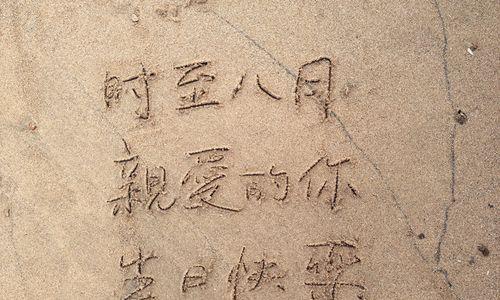 时至八月
親愛的你
生日快樂